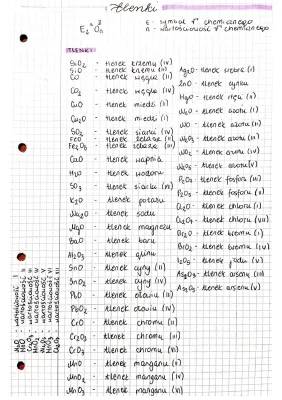 Tlenki
E - symbol p. chemicznego
n - wartościowość p. chemicznego
TLENKI:
SiO₂ - tlenek krzemu (IV)
SiO - tlenek krzemu (II)
CO - tlenek węgla (II)
CO₂ - tlenek węgla (IV)
CuO - tlenek miedzi (II)
Cu₂O - tlenek miedzi (I)
SO₂ - tlenek siarki (IV)
FeO - tlenek żelaza (II)
Fe₂O₃ - tlenek żelaza (III)
CaO - tlenek wapnia
H₂O - tlenek wodoru
SO₃ - tlenek siarki (VI)
K₂O - tlenek potasu
Na₂O - tlenek sodu
MgO - tlenek magnezu
BaO - tlenek baru
Al₂O₃ - tlenek glinu
SnO - tlenek cyny (II)
SnO₂ - tlenek cyny (IV)
PbO - tlenek ołowiu (II)
PbO₂ - tlenek ołowiu (IV)
CrO - tlenek chromu (II)
Cr₂O₃ - tlenek chromu (III)
CrO₃ - tlenek chromu (VI)
MnO - tlenek manganu (II)
MnO₂ - tlenek manganu (IV)
tlenek manganu (VI)
Ag₂O - tlenek srebra (I)
ZnO - tlenek cynku
HgO - tlenek rtęci (II)
N₂O - tlenek azotu (I)
NO - tlenek azotu (II)
N₂O₃ - tlenek azotu (III)
NO₂ - tlenek azotu (IV)
N₂O₅ - tlenek azotu (V)
P₂O₃ - tlenek fosforu (III)
P₂O₅ - tlenek fosforu (V)
Cl₂O - tlenek chloru (I)
Cl₂O₇ - tlenek chloru (VII)
Br₂O - tlenek bromu (I)
BrO₂ - tlenek bromu (IV)
I₂O₅ - tlenek jodu (V)
As₂O₃ - tlenek arsenu (III)
As₂O₅ - tlenek arsenu (V)